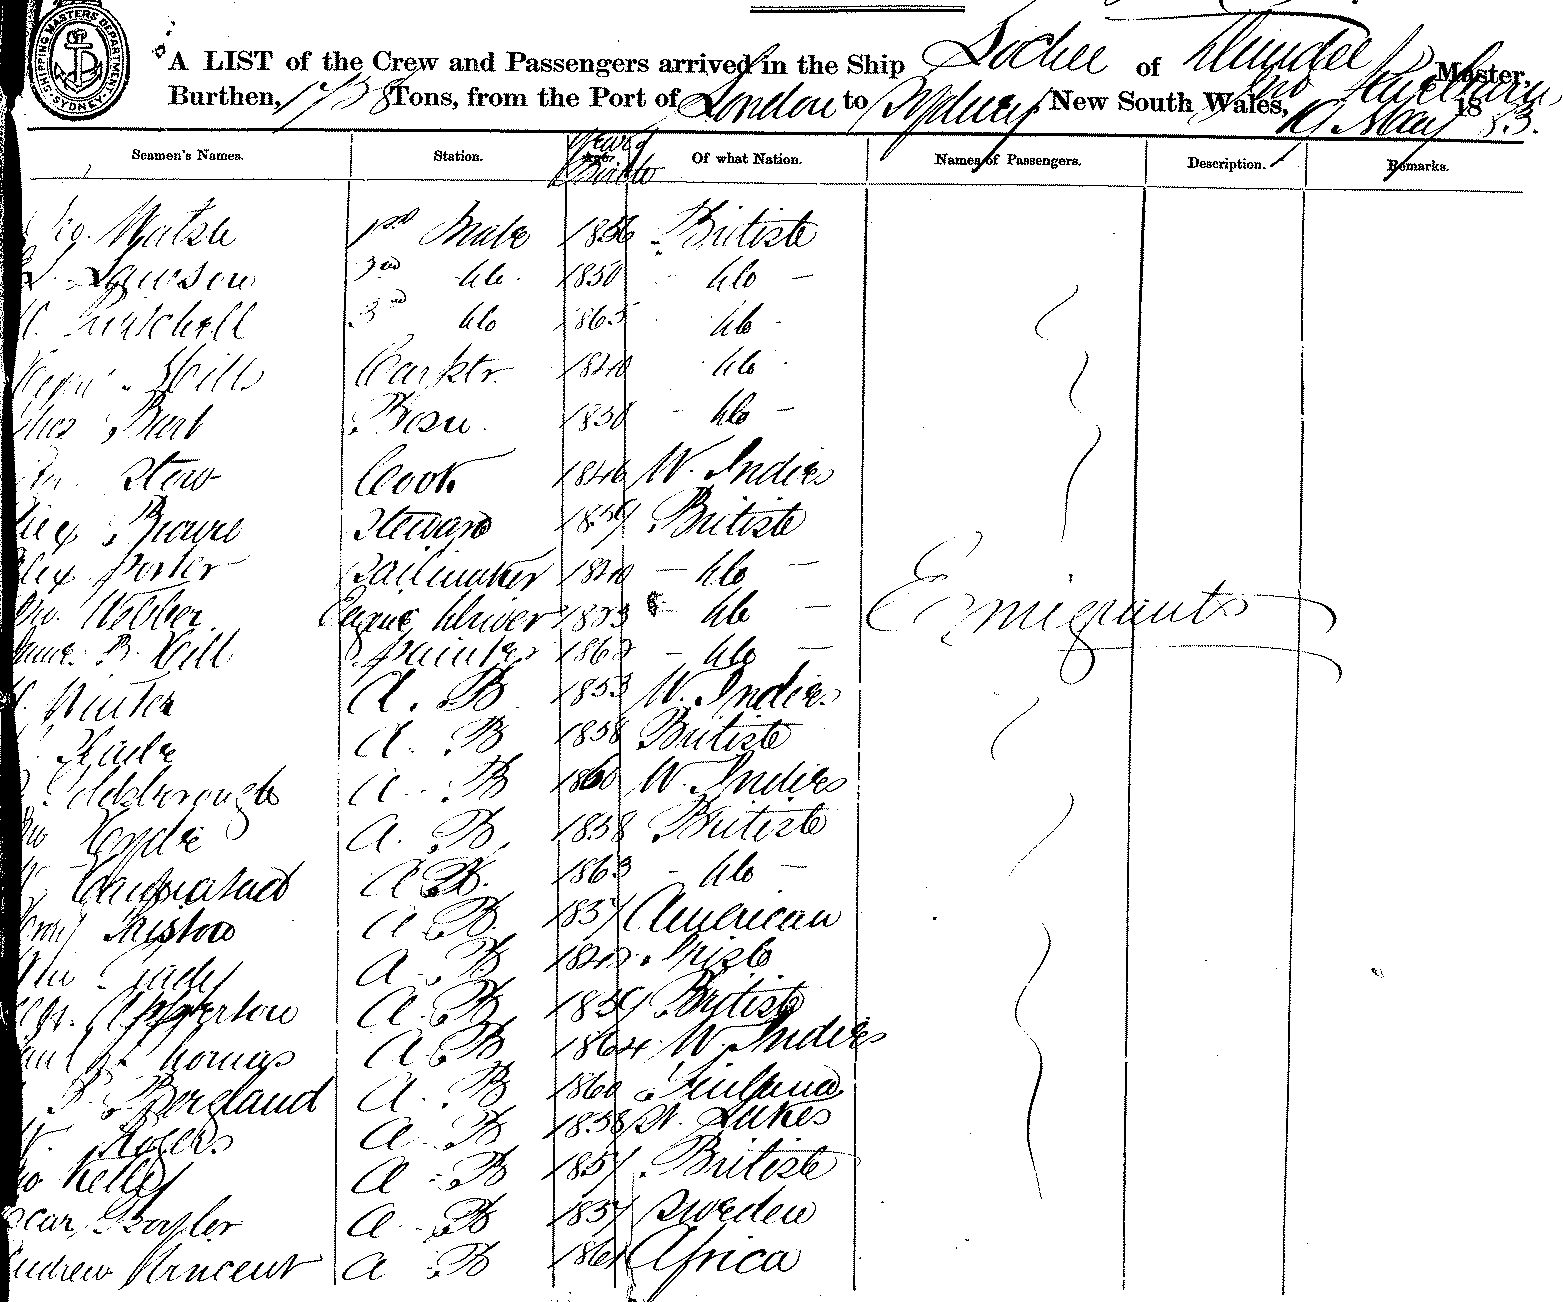 SHIPPING MASTERS DEPARTMENT SYDNEY
A LIST of the Crew and Passengers arrived in the Ship Lochee of Dundee Master,
Burthen, 1728 Tons, from the Port of London to Sydney, New South Wales, 19 May 1883.
Seamen's Names. Station. Year of Birth Of what Nation. Names of Passengers. Description. Remarks.
Walsh 1st Mate 1856 British
Lawson 2nd do 1850 - do -
3rd do 1865 do
Mills Carptr. 1840 do
Burt Bosn. 1850 - do -
Stow Cook 1846 W. Indies
Steward 1859 British
Alex Porter Sailmaker 1840 - do -
Jno. Webber Engine Driver 1853 - do - Emigrants
James B. Hill Painter 1862 - do -
Winter A. B 1853 W. Indies
A. B 1858 British
Goldsborough A. B 1860 W. Indies
Jno Hyde A. B. 1858 British
A B. 1863 - do -
Bristow A B. 1857 American
A. B Irish
Apperton A. B 1859 British
Paul Thomas A B 1864 W. Indies
P. Bergland A. B 1860 Finland
Rogers A B 1858 St. Lukes
Jno Kelly A - B 1857 British
Oscar A B 1857 Sweden
Andrew Vincent A B 1861 Africa